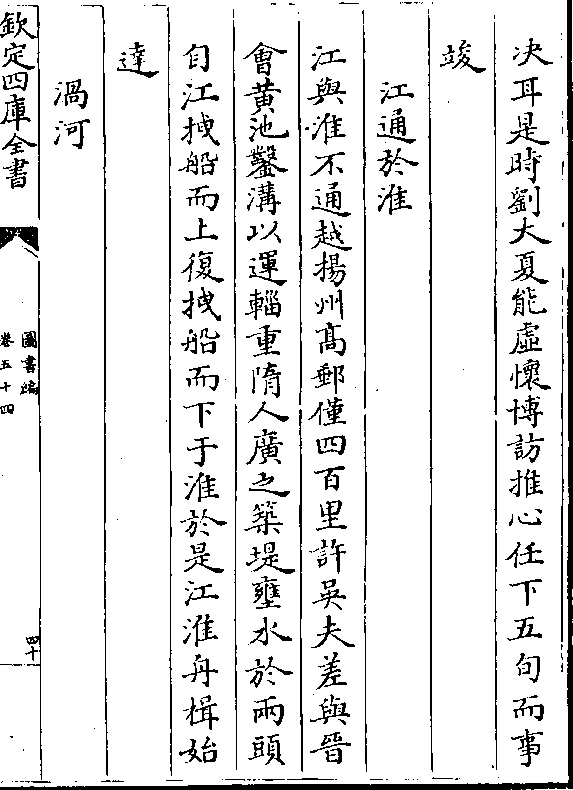 決耳是時劉大夏能虛懷博訪推心任下五旬而事
竣
江通於淮
江與淮不通越揚州髙郵僅四百里許吳夫差與晉
會黄池鑿溝以運輜重隋人廣之築堤壅水於兩頭
自江拽船而上復拽船而下于淮於是江淮舟楫始
達
渦河
欽定四庫全書
圖書編
卷五十四
四十